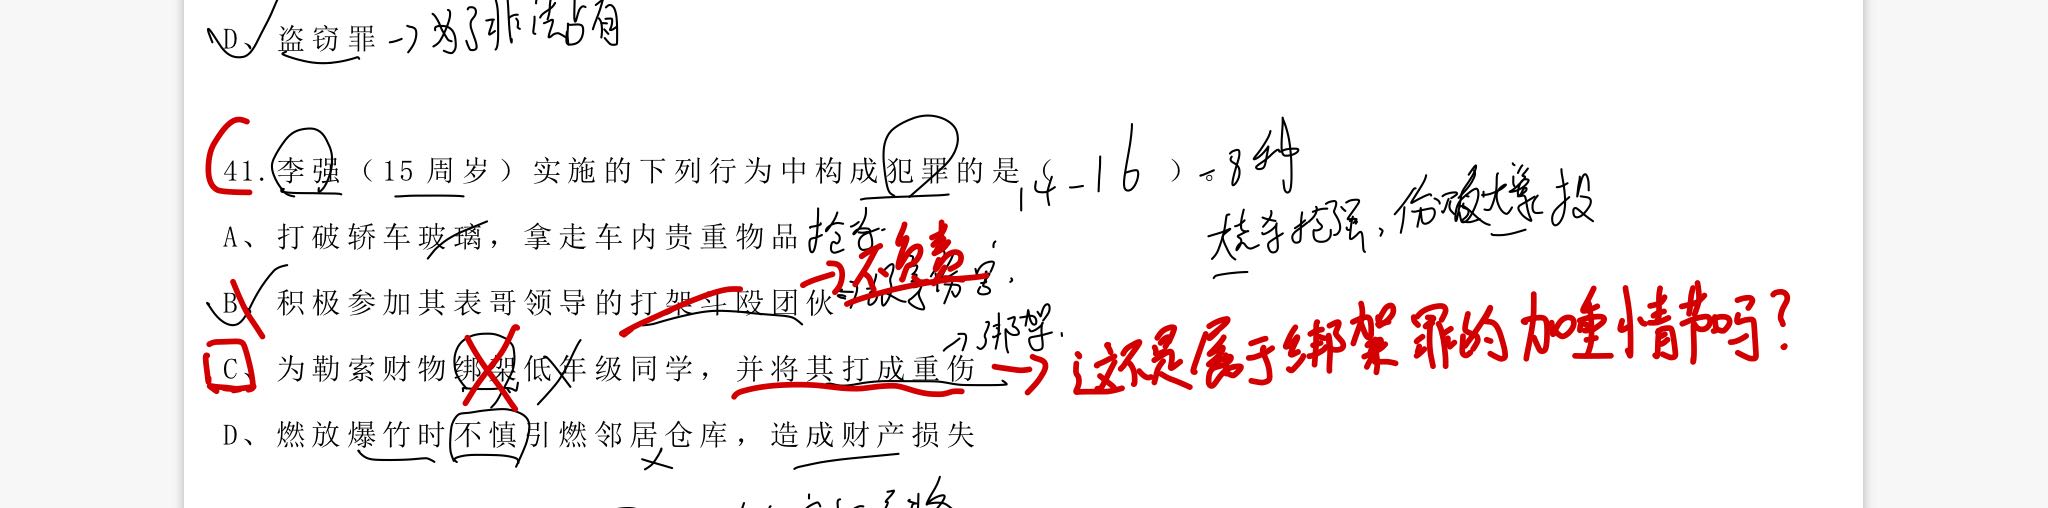 D、盗窃罪 → 为了非法占有
41.李强（15周岁）实施的下列行为中构成犯罪的是（ ）。14-16 - 8种
大毒杀抢强，伤贩大爆投
A、打破轿车玻璃，拿走车内贵重物品 抢夺
→不负责
B、积极参加其表哥领导的打架斗殴团伙
→绑架.
C、为勒索财物绑架低年级同学，并将其打成重伤 → 这不是属于绑架罪的加重情节吗？
D、燃放爆竹时不慎引燃邻居仓库，造成财产损失